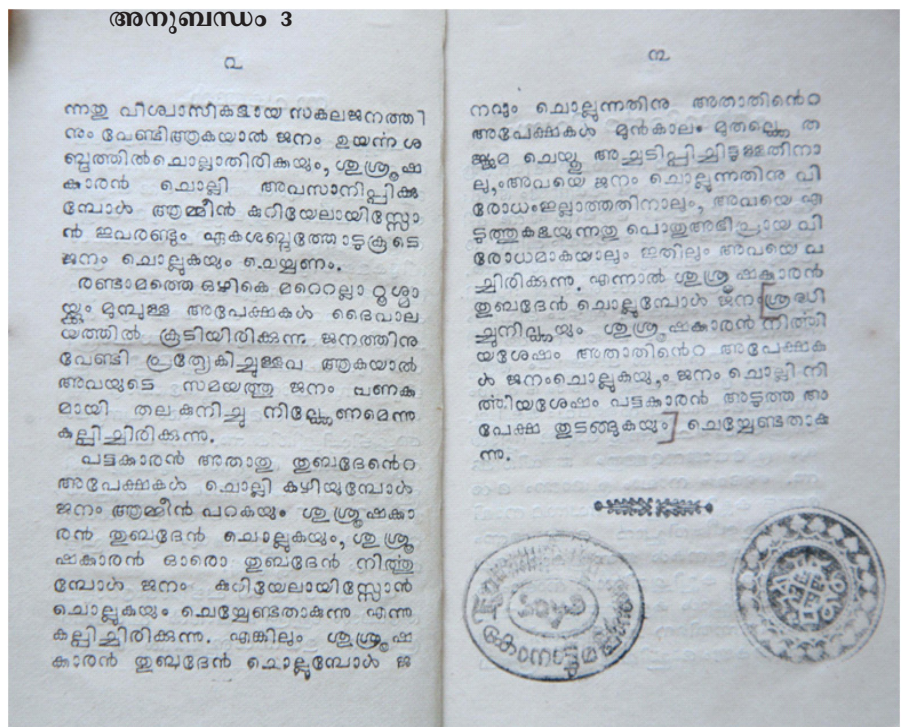 അനുബന്ധം 3
൨
ന്നതു വിശ്വാസികളായ സകലജനത്തി
നും വേണ്ടിആകയാൽ ജനം ഉയൎന്ന ശ
ബ്ദത്തിൽചൊല്ലാതിരികയും, ശുശ്രൂഷ
കാരൻ ചൊല്ലി അവസാനിപ്പിക്കു
മ്പോൾ ആമ്മീൻ കുറിയേലായിസ്സോ
ൻ ഇവരണ്ടും ഏകശബ്ദത്തോടുകൂടെ
ജനം ചൊല്ലുകയും ചെയ്യണം.
രണ്ടാമത്തെ ഒഴികെ മറ്റെറല്ലാ റൂശ്മാ
യ്ക്കും മുമ്പുള്ള അപേക്ഷകൾ ദൈവാല
യത്തിൽ കൂടിയിരിക്കുന്ന ജനത്തിനു
വേണ്ടി പ്രത്യേകിച്ചുള്ളവ ആകയാൽ
അവയുടെ സമയത്തു ജനം വണക്ക
മായി തല കുനിച്ചു നില്ക്കേണമെന്നു
കല്പിച്ചിരിക്കുന്നു.
പട്ടക്കാരൻ അതാതു തുബദേൻെറ
അപേക്ഷകൾ ചൊല്ലി കഴിയുമ്പോൾ
ജനം ആമ്മീൻ പറകയും ശുശ്രൂഷക്കാ
രൻ തുബദേൻ ചൊല്ലുകയും, ശുശ്രൂ
ഷക്കാരൻ ഓരൊ തുബദേൻ നിൎത്തു
മ്പോൾ ജനം കുറിയേലായിസ്സോൻ
ചൊല്ലുകയും ചെയ്യേണ്ടതാകുന്നു എന്നു
കല്പിച്ചിരിക്കുന്നു. എങ്കിലും ശുശ്രൂഷ
ക്കാരൻ തുബദേൻ ചൊല്ലുമ്പോൾ ജ
൩
നവും ചൊല്ലുന്നതിനു അതാതിൻെറ
അപേക്ഷകൾ മുൻകാലം മുതല്ക്കെ ത
ജ്ജമ ചെയ്തു അച്ചടിപ്പിച്ചിട്ടുള്ളതിനാ
ലും,അവയെ ജനം ചൊല്ലുന്നതിനു വി
രോധംഇല്ലാത്തതിനാലും, അവയെ എ
ടുത്തുകളയുന്നതു പൊതുഅഭിപ്രായ വി
രോധമാകയാലും ഇതിലും അവയെ വ
ച്ചിരിക്കുന്നു. എന്നാൽ ശുശ്രൂഷക്കാരൻ
തുബദേൻ ചൊല്ലുമ്പോൾ ജനം[ശ്രദ്ധി
ച്ചുനില്ക്കയും ശുശ്രൂഷക്കാരൻ നിൎത്തി
യശേഷം അതാതിൻെറ അപേക്ഷക
ൾ ജനംചൊല്ലുകയും, ജനം ചൊല്ലി നി
ൎത്തിയശേഷം പട്ടക്കാരൻ അടുത്ത അ
പേക്ഷ തുടങ്ങുകയും] ചെയ്യേണ്ടതാകു
ന്നു.